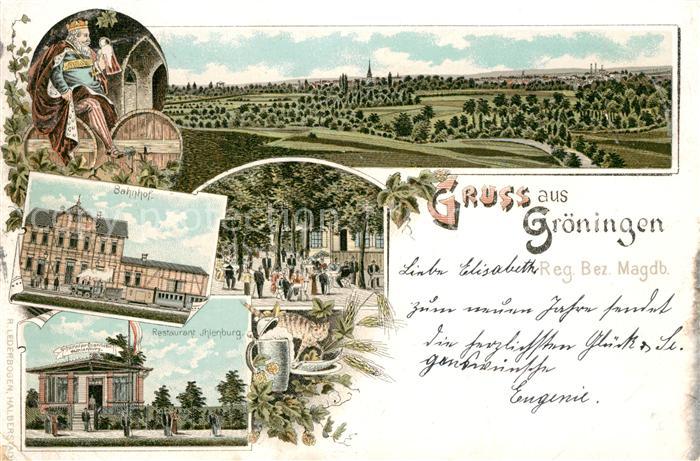 Bahnhof.
Restaurant Ihlenburg.
R. LEDERBOGEN, HALBERSTADT
GRUSS aus
Gröningen
Reg. Bez. Magdb.
Liebe Elisabeth
zum neuen Jahre sendet
die herzlichsten Glück & Se-
genswünsche
Eugenie.